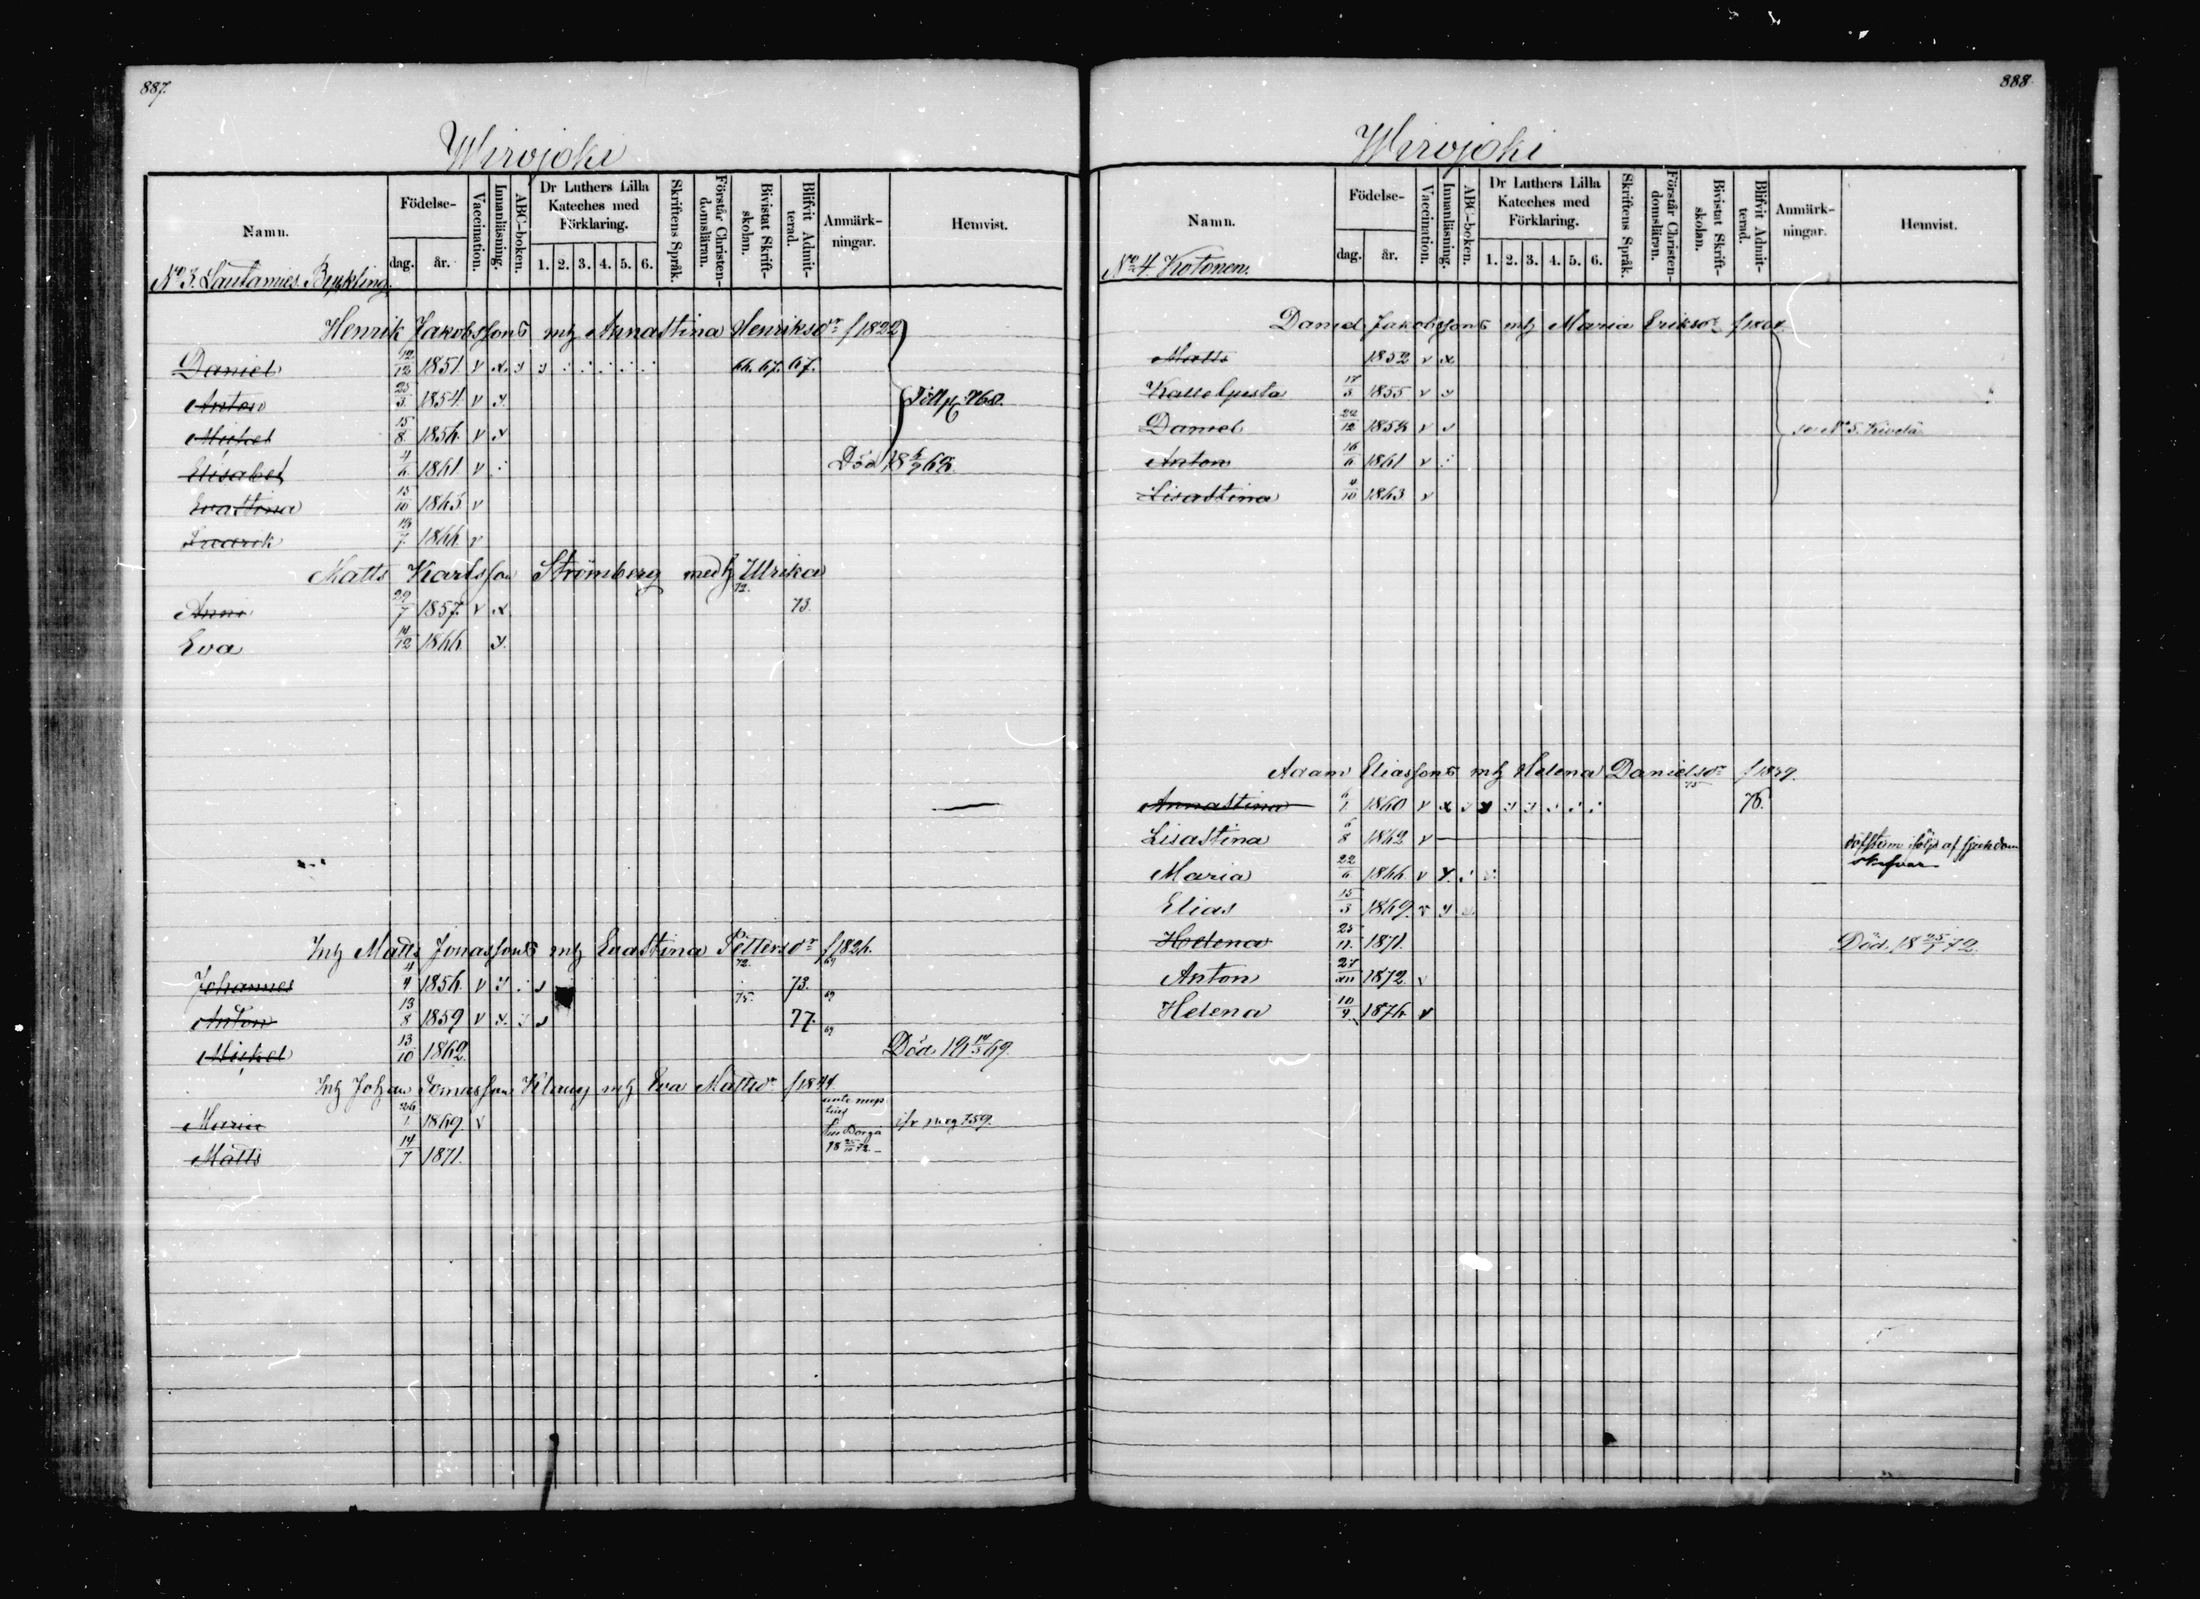 887.
Wirojoki
Namn.
Födelse-
dag.
år.
Vaccination.
Innanläsning.
ABC-boken.
Dr Luthers Lilla
Kateches med
Förklaring.
1. 2. 3. 4. 5. 6.
Skriftens Språk.
Förstår Christen-
domsläran.
Bivistat Skrift-
skolan.
Blifvit Admit-
terad.
Anmärk-
ningar.
Hemvist.
No 3. Lautamies
Henrik Jakobssons Annastina Henriksdr f 1822
Daniel 12/12 1851. v x 66. 67. 67.
Anton 25/3 1854. v
Mickel 15/8 1856. v x
Elisabet 4/6 1861. v Död 68.
Evastina 13/10 1863 v
Fredrik 7 1866. v
Matts Karlsson Strömberg Ulrika
72.
Anna 29/7 1857. v x 73.
Eva 14/12 1866.
Matts Jonassons Evastina Pettersdr f 1826.
72. 69
Johannes 4/4 1856. v 73.
75. 69
Anton 13/8 1859 v 77.
69
Mickel 13/10 1862. Död 18 14/3 69.
Johan Tomasson Eva Mattsdr f 1844
Maria 26/1 1869. v
Borgå
Matts 14/7 1871.
888.
Wirojoki
Namn.
Födelse-
dag.
år.
Vaccination.
Innanläsning.
ABC-boken.
Dr Luthers Lilla
Kateches med
Förklaring.
1. 2. 3. 4. 5. 6.
Skriftens Språk.
Förstår Christen-
domsläran.
Bivistat Skrift-
skolan.
Blifvit Admit-
terad.
Anmärk-
ningar.
Hemvist.
No 4 Kotonen.
Daniel Jakobssons Maria Eriksdr
Matts 1852 v x
Kalle Gusta 17/3 1855 v
Daniel 22/12 1858 v se No 5. Kivelä
Anton 16/6 1861 v
Lisastina 4/10 1863. v
Adam Eliassons Helena Danielsdr f 1839.
75
Annastina 6/1. 1860 v x 76.
Lisastina 6/8 1862 v
döfstum i följd af sjukdom
Maria 22/6 1866. v
Elias 15/3 1869. v
Helena 25/11. 1871. Död. 18 25/1 72.
Anton 27/XII 1872. v
Helena 10/9. 1876. v